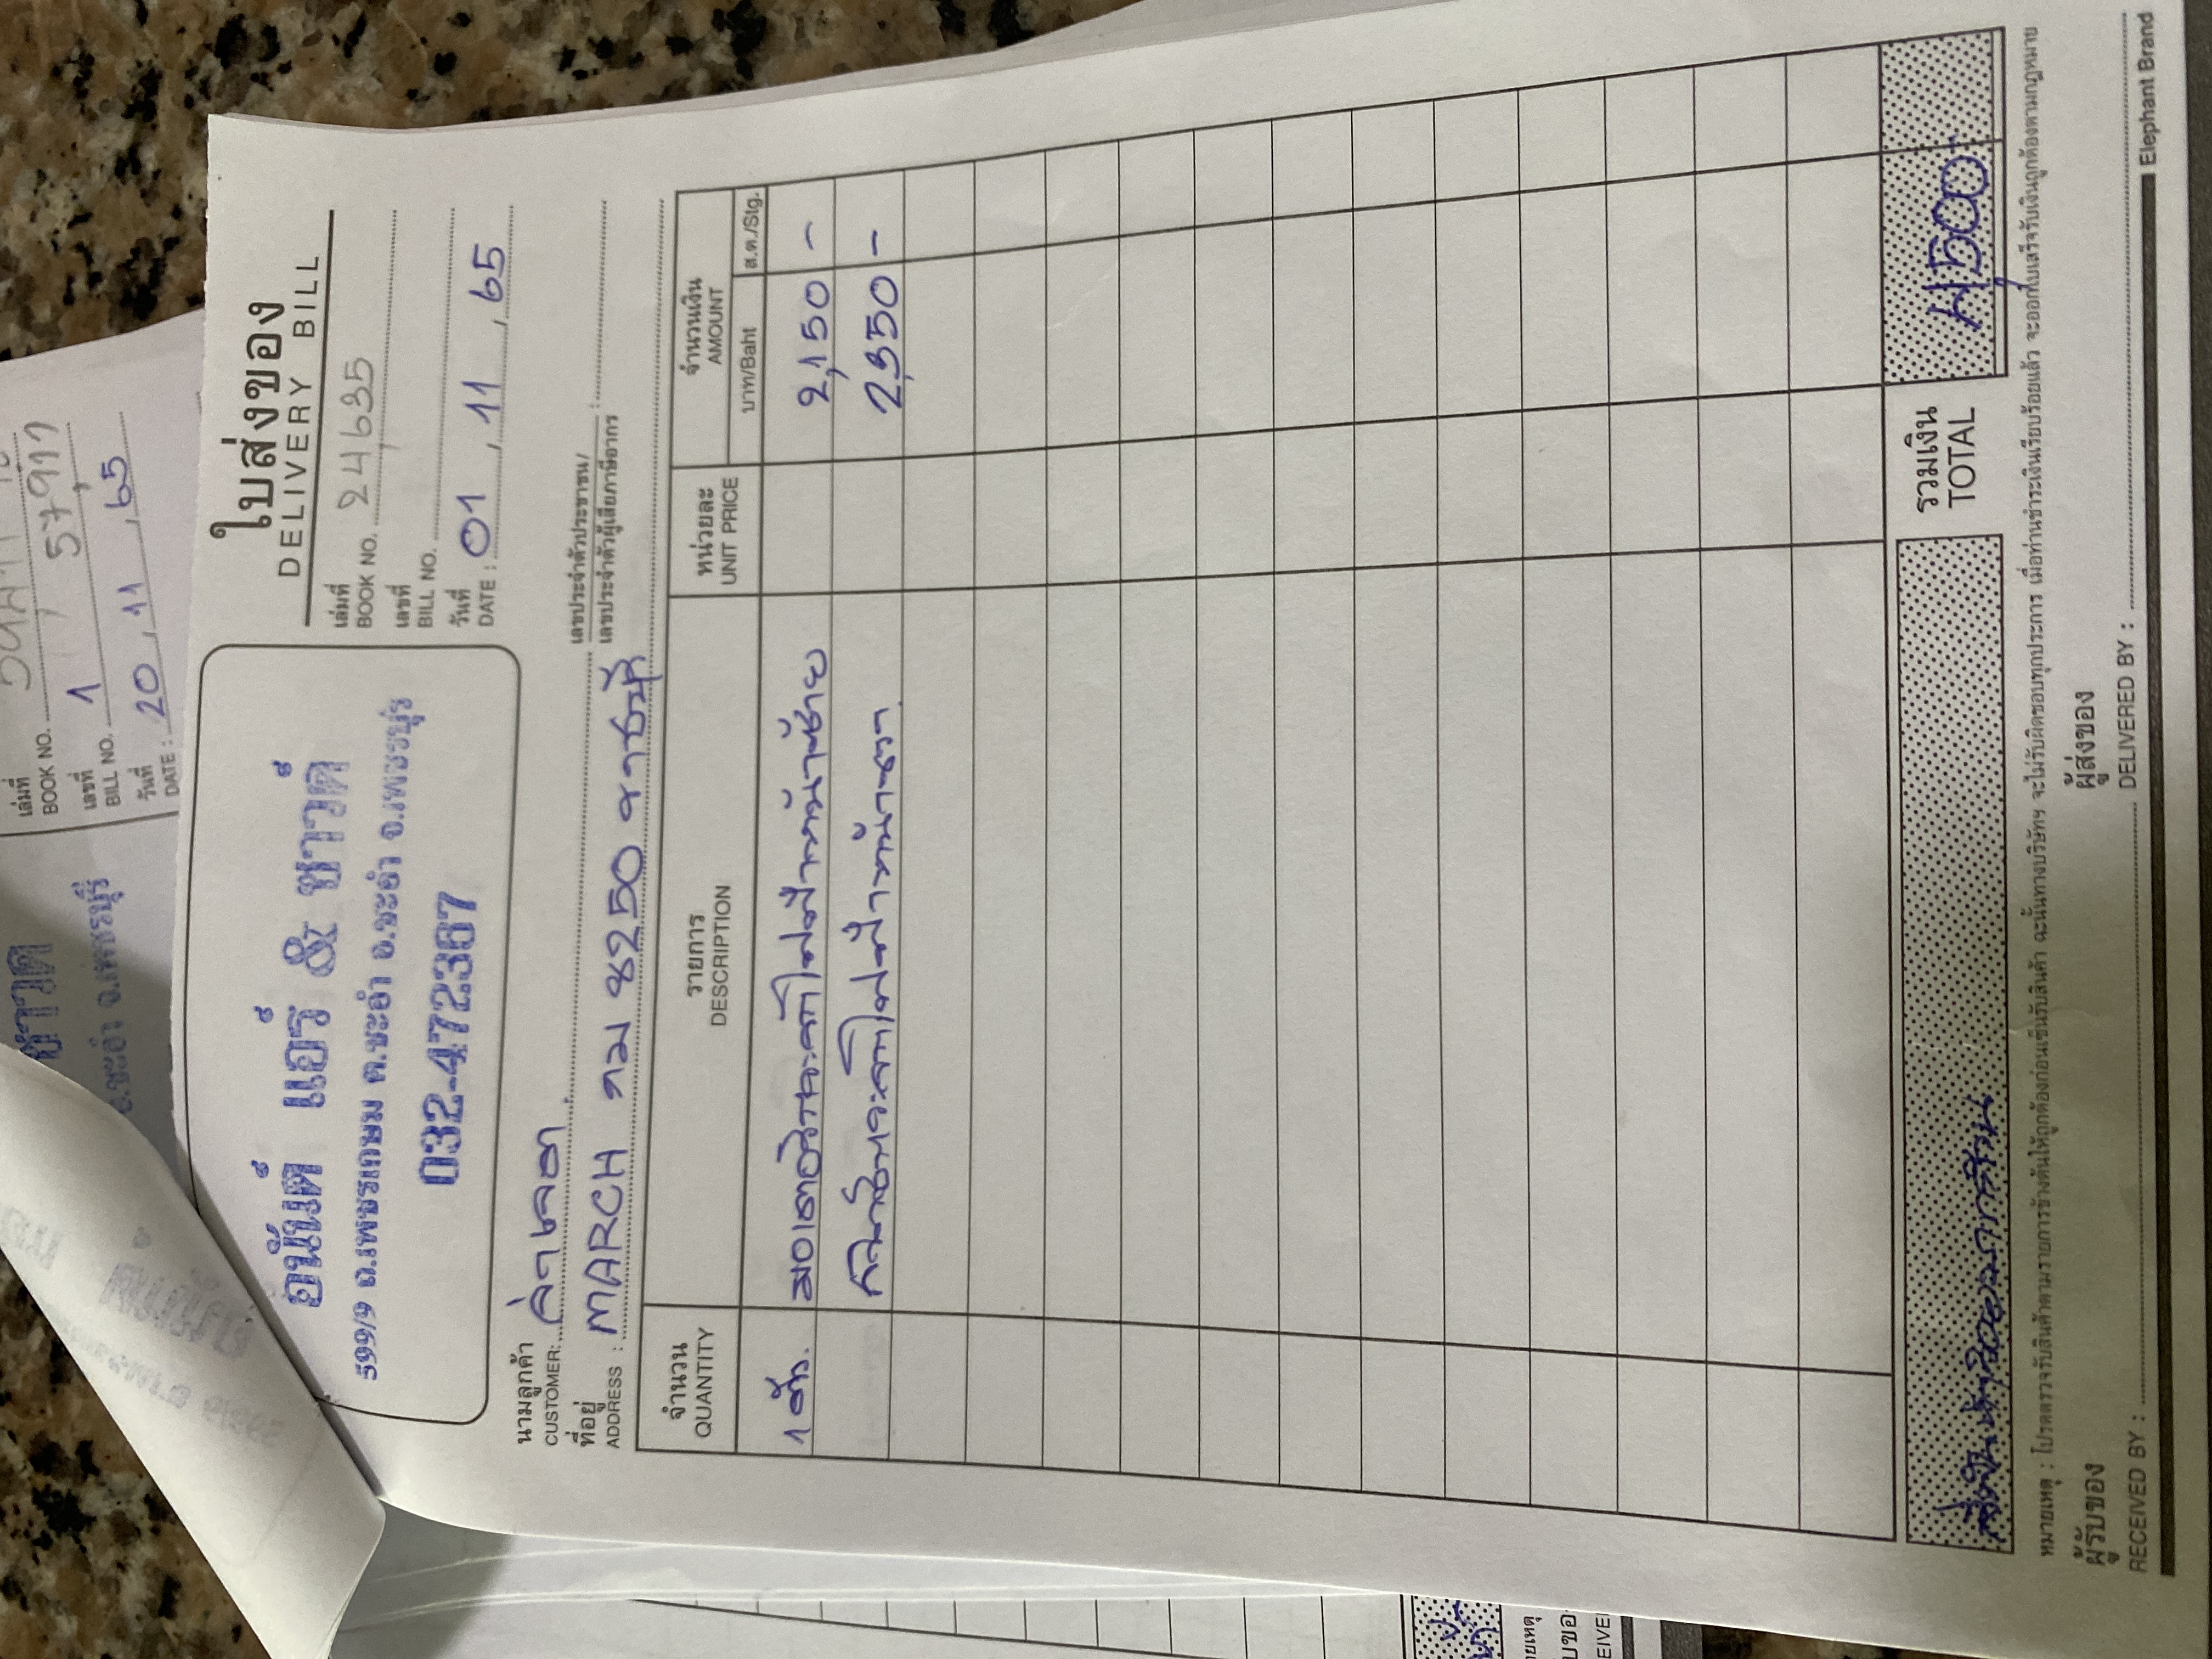 ใบส่งของ
DELIVERY BILL
อนันต์ แอร์ & ซาวด์
599/9 ถ.เพชรเกษม ต.ชะอำ อ.ชะอำ จ.เพชรบุรี
032-472387
เล่มที่
BOOK NO. 24,635
เลขที่
BILL NO.
วันที่
DATE : 01 , 11 , 65
นามลูกค้า
CUSTOMER:
เลขประจำตัวประชาชน/
เลขประจำตัวผู้เสียภาษีอากร :
ที่อยู่
ADDRESS : MARCH กม 8250 ราชบุรี
จำนวน รายการ หน่วยละ จำนวนเงิน
QUANTITY DESCRIPTION UNIT PRICE AMOUNT
บาท/Baht ส.ต./Stg.
1 ตัว. มอเตอร์ยกกระจกไฟฟ้าหน้าซ้าย 2,150 -
ไฟฟ้าหน้าขวา 2,350 -
รวมเงิน
TOTAL 4,500 -
หมายเหตุ : โปรดตรวจรับสินค้าตามรายการข้างต้นให้ถูกต้องก่อนเซ็นรับสินค้า ฉะนั้นทางบริษัทฯ จะไม่รับผิดชอบทุกประการ เมื่อท่านชำระเงินเรียบร้อยแล้ว จะออกใบเสร็จรับเงินถูกต้องตามกฎหมาย
ผู้รับของ ผู้ส่งของ
RECEIVED BY : DELIVERED BY :
Elephant Brand
เล่มที่
BOOK NO. 57,977
เลขที่
BILL NO. 1
วันที่
DATE : 20 , 11 , 65
ซาวด์
อ.ชะอำ จ.เพชรบุรี